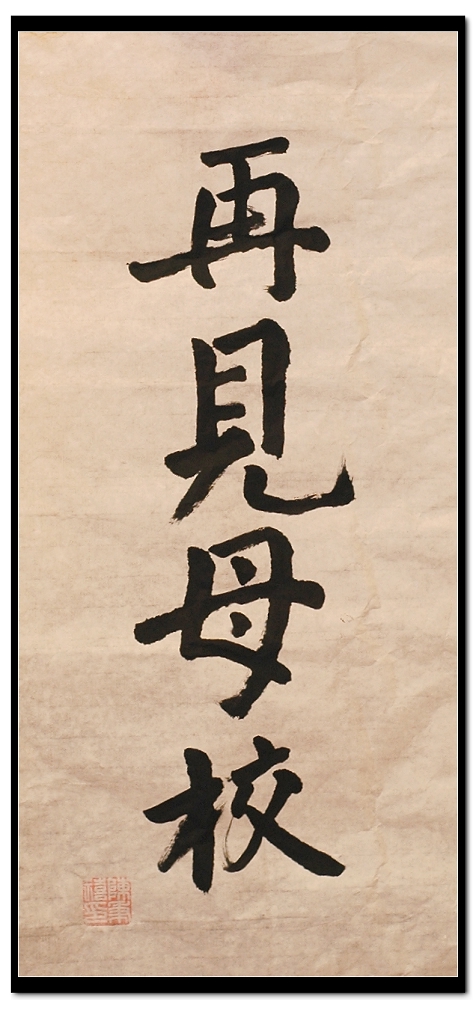 再見母校